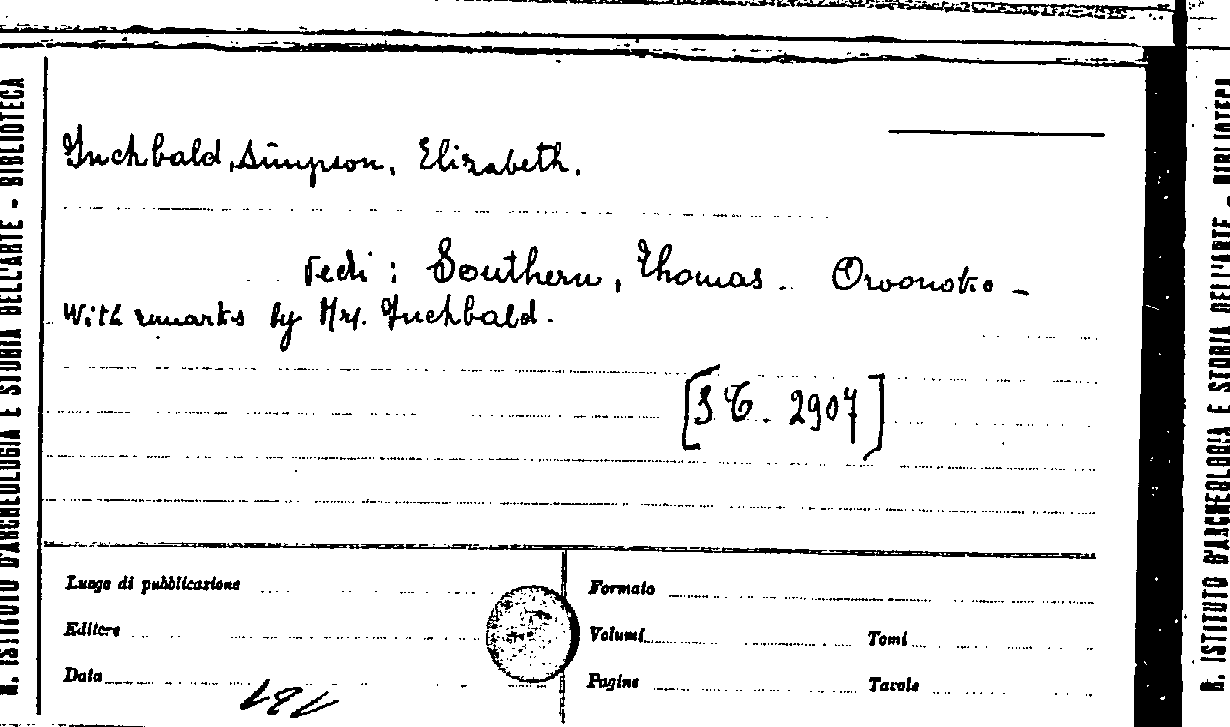 Inchbald, Simpson, Elizabeth.
vedi : Southern, Thomas. Oroonoko -
With remarks by Mrs. Inchbald.
[S C. 2907]
Luogo di pubblicazione
Editore
Data
Formato
Volumi
Tomi
Pagine
Tavole
R. ISTITUTO D'ARCHEOLOGIA E STORIA DELL'ARTE - BIBLIOTECA
R. ISTITUTO D'ARCHEOLOGIA E STORIA DELL'ARTE - BIBLIOTECA